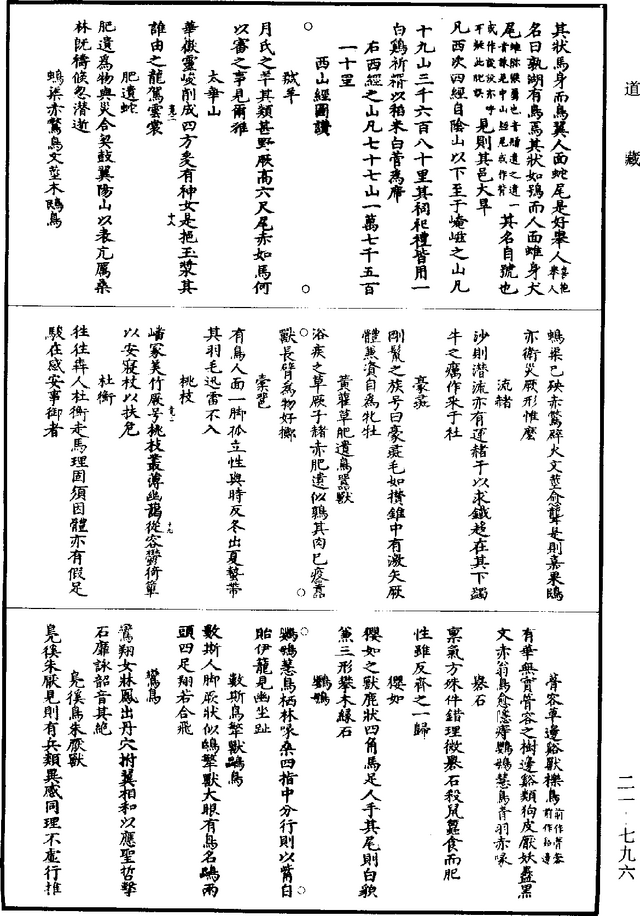 道藏
其狀馬身而鳥翼人面蛇尾是好舉人喜抱舉人
名曰孰湖有鳥焉其狀如鴞而人面蜼身犬
尾蜼獼猴屬也音贈遺之遺一音誄見中山經尾或作皆其名自號也
或作設設亦呼耳疑此脫誤見則其邑大旱
凡西次四經自陰山以下至于崦嵫之山凡
十九山三千六百八十里其祠祀禮皆用一
白鷄祈糈以稻米白菅為席
右西經之山凡七十七山一萬七千五百
一十里
西山經圖讚
羬羊
月氏之羊其類甚野厥高六尺尾赤如馬何
以審之事見爾雅
太華山
華嶽靈峻削成四方爰有神女是挹玉漿其
誰由之龍駕雲裳
肥遺蛇
肥遺為物與災合契鼓翼陽山以表亢厲桑
林既禱倏忽潛逝
䳋渠赤鷩鳥文莖木鴖鳥
䳋渠已殃赤鷩辟火文莖愈聾是則嘉果鴖
亦衛災厥形惟麼
流赭
沙則潛流亦有運赭于以求鐵趍在其下蠲
牛之癘作采于社
豪彘
剛鬣之族号曰豪彘毛如攢錐中有激矢厥
體兼資自為牝牡
黃雚草肥遺鳥嚻獸
浴疾之草厥子赭赤肥遺似鶉其肉已疫嚻
獸長臂為物好擲
橐𩇯
有鳥人面一脚孤立性與時反冬出夏蟄帶
其羽毛迅雷不入
桃枝
嶓冢美竹厥号桃枝叢薄幽藹從容鬱猗簟
以安寢杖以扶危
杜衡
狌狌犇人杜衡走馬理固須因體亦有假足
駿在感安事御者
菁容草邊谿獸櫟鳥前作蓇蓉前作谿邊
有華無實菁容之樹邊谿類狗皮厭妖蠱黑
文赤翁鳥愈隱痔鸚䳇慧鳥青羽赤喙
礜石
稟氣方殊件錯理微礜石殺鼠蠶食而肥
性雖反齊之一歸
獿如
獿如之獸鹿狀四角馬足人手其尾則白貌
兼三形攀木緣石
鸚䳇
鸚䳇慧鳥栖林喙桑四指中分行則以觜自
貽伊籠見幽坐趾
數斯鳥擎獸鸓鳥
數斯人脚厥狀似鴟擎獸大眼有鳥名鸓兩
頭四足翔若合飛
鸞鳥
鸞翔女牀鳳出丹穴拊翼相和以應聖哲擊
石靡詠韶音其絕
鳧徯鳥朱厭獸
鳧徯朱厭見則有兵類異感同理不虛行推
二一·七九六